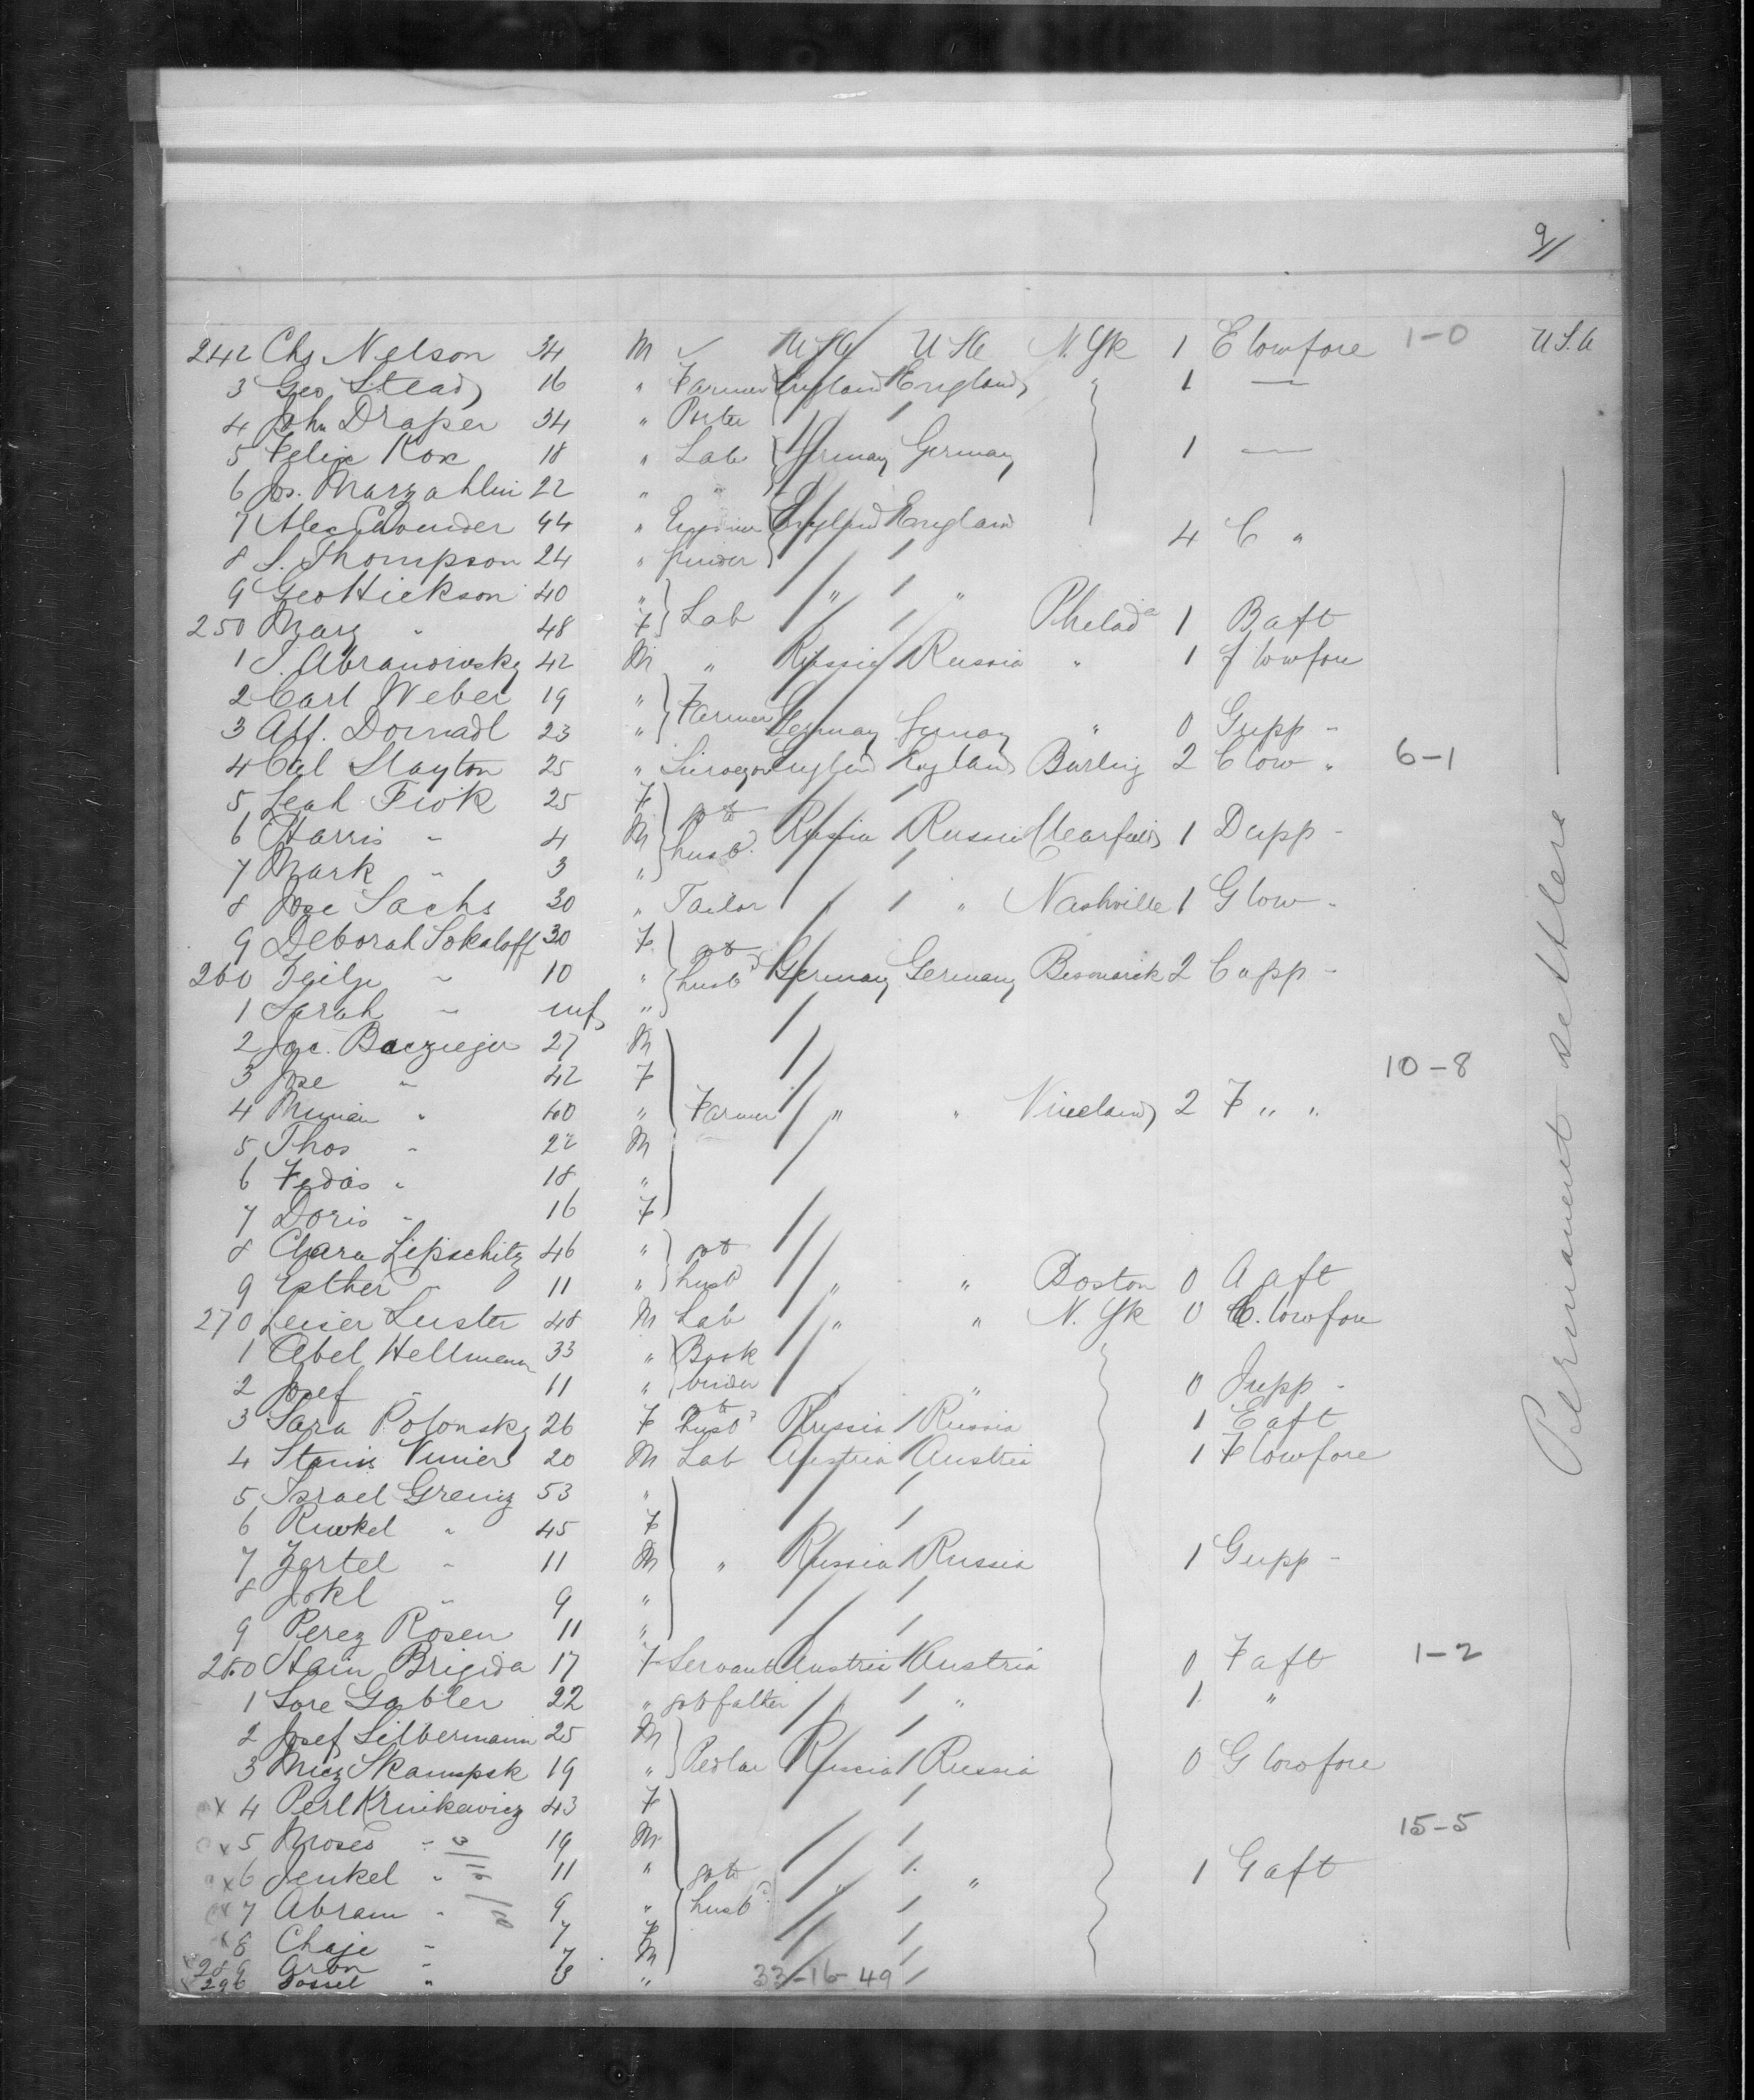 9/
242 Chs Nelson 34 M ✓ USA USA N. Yk 1 E lowfore 1-0 U.S.A
3 Geo Stead 16 " Farmer England England " 1 —
4 John Draper 34 " Porter
5 Felix Kox 18 " Lab Germany Germany 1 —
6 Jos. Marzahlin 22 " "
7 Alec 44 " England England 4 C "
8 S. Thompson 24 "
9 Geo Hickson 40 " Lab " "
250 Mary " 48 F Philada 1 B aft
1 J. Abranowsky 42 M " Russia Russia " 1 F lowfore
2 Carl Weber 19 "
3 Alf. Dornadl 23 " Farmer Germany Germany " 0 G upp -
4 Cal Slayton 25 " Surveyor England England Burling 2 C low " 6-1
5 Leah Fiok 25 F
6 Harris " 4 M to husbd Russia Russia Clearfield 1 D upp -
7 Mark " 3 "
8 Jose Sachs 30 " Tailor " " Nashville 1 G low -
9 Deborah Sokaloff 30 F to
260 " 10 " husbd Germany Germany Bismarck 2 C upp -
1 Sarah " inf "
2 Jac. Bacziejer 27 M
3 Jose " 42 F 10-8
4 " 60 " Farmer " " Vineland 2 F " "
5 Thos " 22 M
6 Fedas " 18 "
7 Doris " 16 F
8 Clara Lipschitz 46 " to
9 Esther " 11 " husbd " " Boston 0 A aft
270 Leiser Luster 48 M Lab " " N. Yk 0 C. lowfore
1 Abel Hellmann 33 " Book
2 Josef " 11 " binder " " 0 J upp -
3 Sara Polonsky 26 F to husbd Russia Russia 1 E aft
4 Stanis Vinier 20 M Lab Austria Austria 1 F lowfore
5 Israel Greniz 53 "
6 Riwkel " 45 F
7 Zertel " 11 M " Russia Russia 1 G upp -
8 Jokl " 9 "
9 Perez Rosen 11 "
280 Stain Brigida 17 F Servant Austria Austria 0 F aft 1-2
1 Sore Gabler 22 " to father " " 1 "
2 Josef Silbermann 25 M
3 Miez Skampsk 19 " Pedlar Russia Russia 0 G lowfore
x 4 Perl Krinkewicz 43 F
x 5 Moses " 19 M 15-5
x 6 Jenkel " 11 " to " " 1 G aft
x 7 Abram " 9 " husbd
x 8 Chaje " 7 F
x 289 Aron " 7 M
x 290 Jossel " "
33-16-49
Permanent settlers